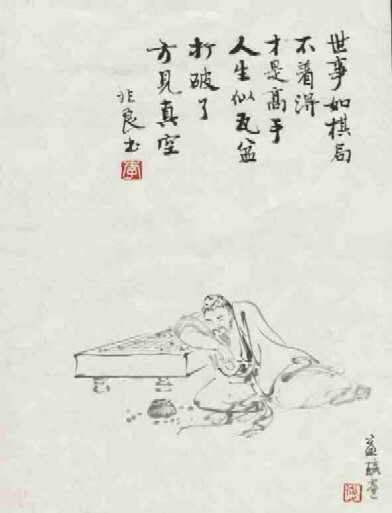 世事如棋局
不着得
才是高手
人生似瓦盆
打破了
方見真空
良书